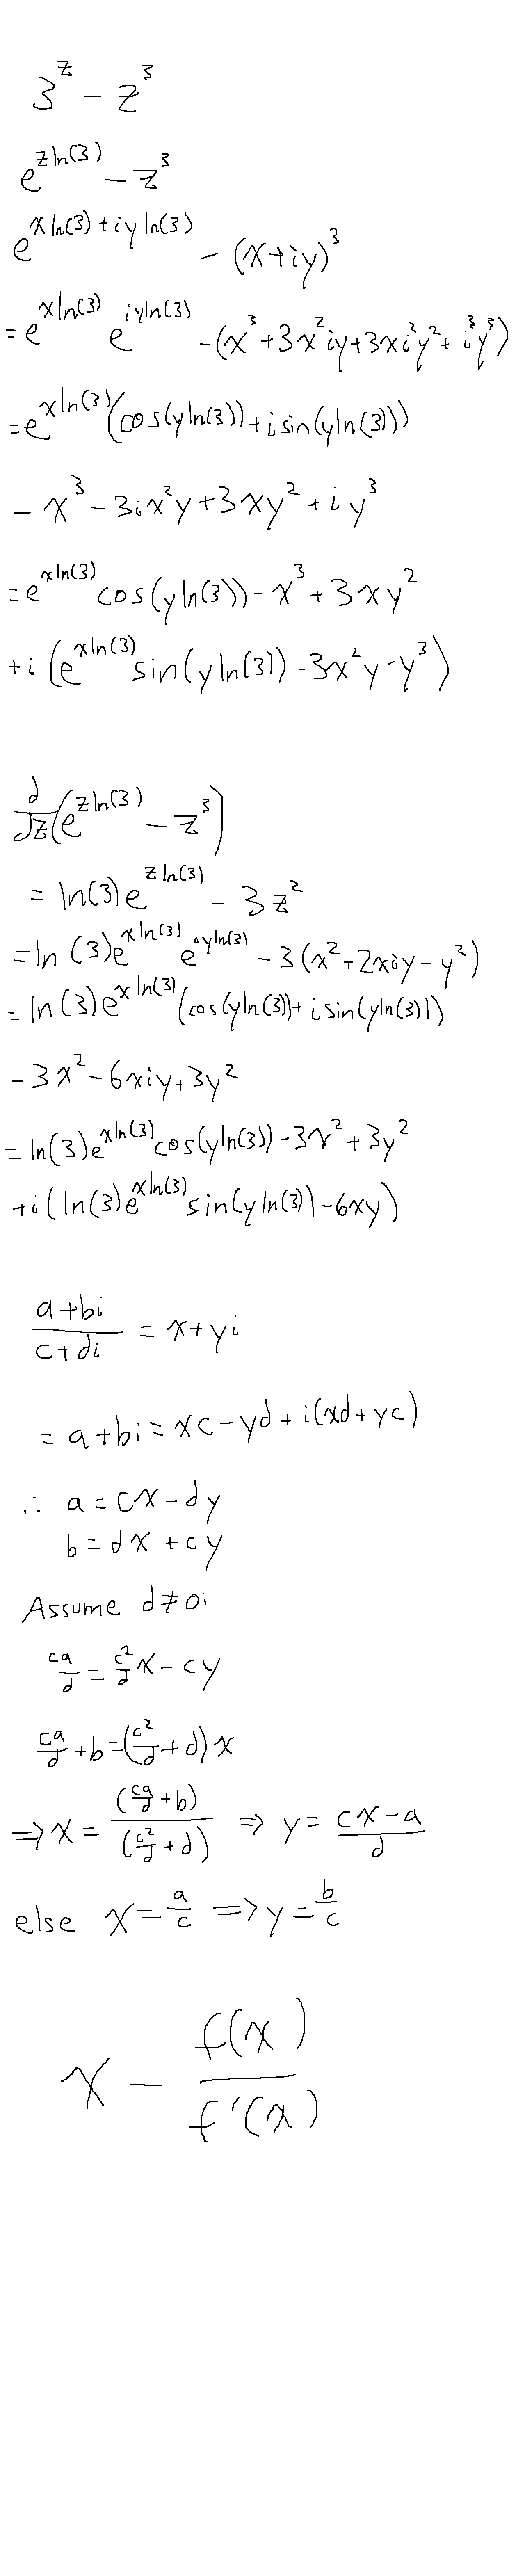 3^z - z^3
e^{z ln(3)} - z^3
e^{x ln(3) + iy ln(3)} - (x+iy)^3
= e^{x ln(3)} e^{iy ln(3)} - (x^3 + 3x^2iy + 3xi^2y^2 + i^3y^3)
= e^{x ln(3)} (cos(y ln(3)) + i sin(y ln(3)))
- x^3 - 3ix^2y + 3xy^2 + iy^3
= e^{x ln(3)} cos(y ln(3)) - x^3 + 3xy^2
+ i (e^{x ln(3)} sin(y ln(3)) - 3x^2y - y^3)
d/dz (e^{z ln(3)} - z^3)
= ln(3) e^{z ln(3)} - 3z^2
= ln(3) e^{x ln(3)} e^{iy ln(3)} - 3(x^2 + 2xiy - y^2)
= ln(3) e^{x ln(3)} (cos(y ln(3)) + i sin(y ln(3)))
- 3x^2 - 6xiy + 3y^2
= ln(3) e^{x ln(3)} cos(y ln(3)) - 3x^2 + 3y^2
+ i (ln(3) e^{x ln(3)} sin(y ln(3)) - 6xy)
(a+bi)/(c+di) = x+yi
= a+bi = xc - yd + i(xd + yc)
∴ a = cx - dy
b = dx + cy
Assume d ≠ 0;
ca/d = c^2/d x - cy
ca/d + b = (c^2/d + d) x
⇒ x = (ca/d + b)/(c^2/d + d) ⇒ y = (cx - a)/d
else x = a/c ⇒ y = b/c
x - f(x)/f'(x)